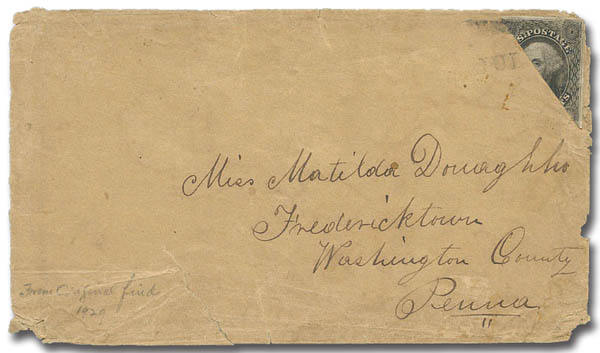 S. POSTAGE
Miss Matilda Donaghho
Fredericktown
Washington County
Penna
From Original find
1920